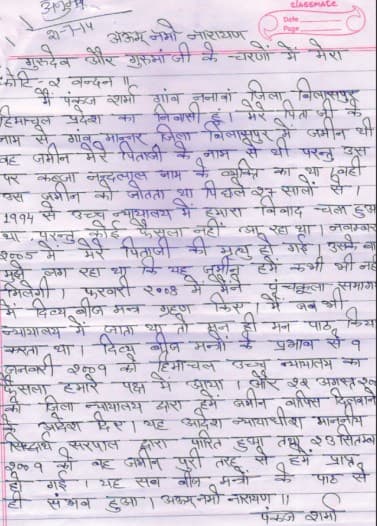 अनुभव
classmate
Date
Page
21-7-14
ॐ नमो नारायण
गुरुदेव और गुरुमां जी के चरणों में मेरा
कोटि-२ वन्दन ॥
में पंकज शर्मा गांव ननावां जिला बिलासपुर
हिमाचल प्रदेश का निवासी हूं। मेरे पिता जी के
नाम से गांव मान्नर जिला बिलासपुर में जमीन थी
वह जमीन मेरे पिताजी के नाम से थी परन्तु उस
पर कब्जा नन्दलाल नाम के व्यक्ति का था। वही
उस जमीन को जोतता था पिछले २७ सालों से।
1994 से उच्च न्यायालय में हमारा विवाद चला हुआ
था परन्तु कोई फैसला नहीं आ रहा था। नवम्बर
२००५ में मेरे पिताजी की मृत्यु हो गई। उसके बाद
मुझे लग रहा था कि यह जमीन हमें कभी भी नहीं
मिलेगी। फरवरी २००८ में मैंने पंचकूला समागम
में दिव्य बीज मन्त्र ग्रहण किए। में जब भी
न्यायालय में जाता था तो मन ही मन पाठ किया
करता था। दिव्य बीज मन्त्रों के प्रभाव से ९
जनवरी २००९ को हिमाचल उच्च न्यायालय का
फैसला हमारे पक्ष में आया। और २१ अगस्त २०
को जिला न्यायालय द्वारा हमें जमीन वापिस दिलवाने
के आदेश दिए। यह आदेश न्यायाधीश माननीय
सिद्धार्थ सरपाल द्वारा पारित हुआ तथा २३ सितम्बर
२००९ को वह जमीन पूरी तरह से हमें प्राप्त
हो गई। यह सब बीज मन्त्रों के पाठ से
ही संभव हुआ। ॐ नमो नारायण ॥
पंकज शर्मा